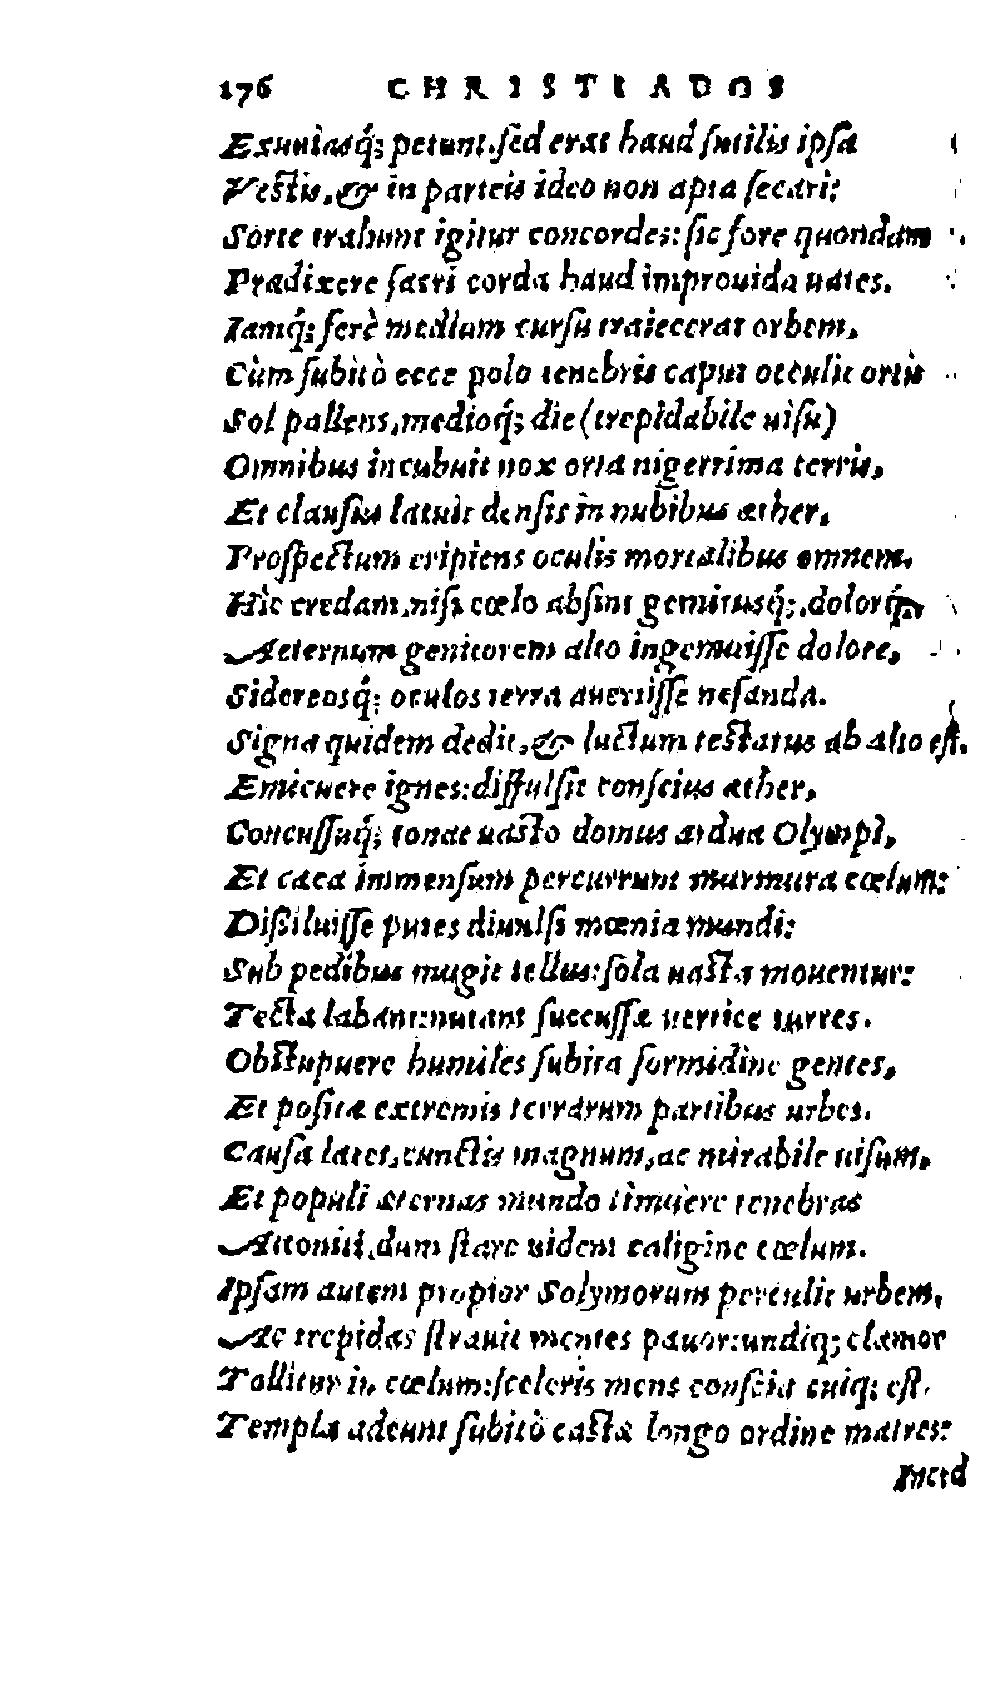 176 CHRISTIADOS
Exuuiasq́; petunt. sed erat haud sutilis ipsa
Vestis, & in parteis ideo non apta secari:
Sorte trahunt igitur concordes: sic fore quondam
Prædixere sacri corda haud improuida uates.
Iamq́; ferè medium cursu traiecerat orbem,
Cùm subitò ecce polo tenebris caput occulit ortis
Sol pallens, medioq́; die (trepidabile uisu)
Omnibus incubuit nox orta nigerrima terris,
Et clausus latuit densis in nubibus æther,
Prospectum eripiens oculis mortalibus omnem.
Hìc credam, nisi cœlo absint gemitusq́;, dolorq́;,
Aeternum genitorem alto ingemuisse dolore,
Sidereosq́; oculos terra auertisse nefanda.
Signa quidem dedit, & luctum testatus ab alto est.
Emicuere ignes: diffulsit conscius æther,
Concussuq́; tonat uasto domus ardua Olympi,
Et cæca immensum percurrunt murmura cœlum:
Dißiluisse putes diuulsi mœnia mundi:
Sub pedibus mugit tellus: sola uasta mouentur:
Tecta labant: nutant succussæ uertice turres.
Obstupuere humiles subita formidine gentes,
Et positæ extremis terrarum partibus urbes.
Causa latet, cunctis magnum, ac mirabile uisum,
Et populi æternas mundo timuêre tenebras
Attoniti, dum stare uident caligine cœlum.
Ipsam autem propior Solymorum perculit urbem,
Ac trepidas strauit mentes pauor: undiq; clamor
Tollitur in cœlum: sceleris mens conscia cuiq; est.
Templa adeunt subitò castæ longo ordine matres: